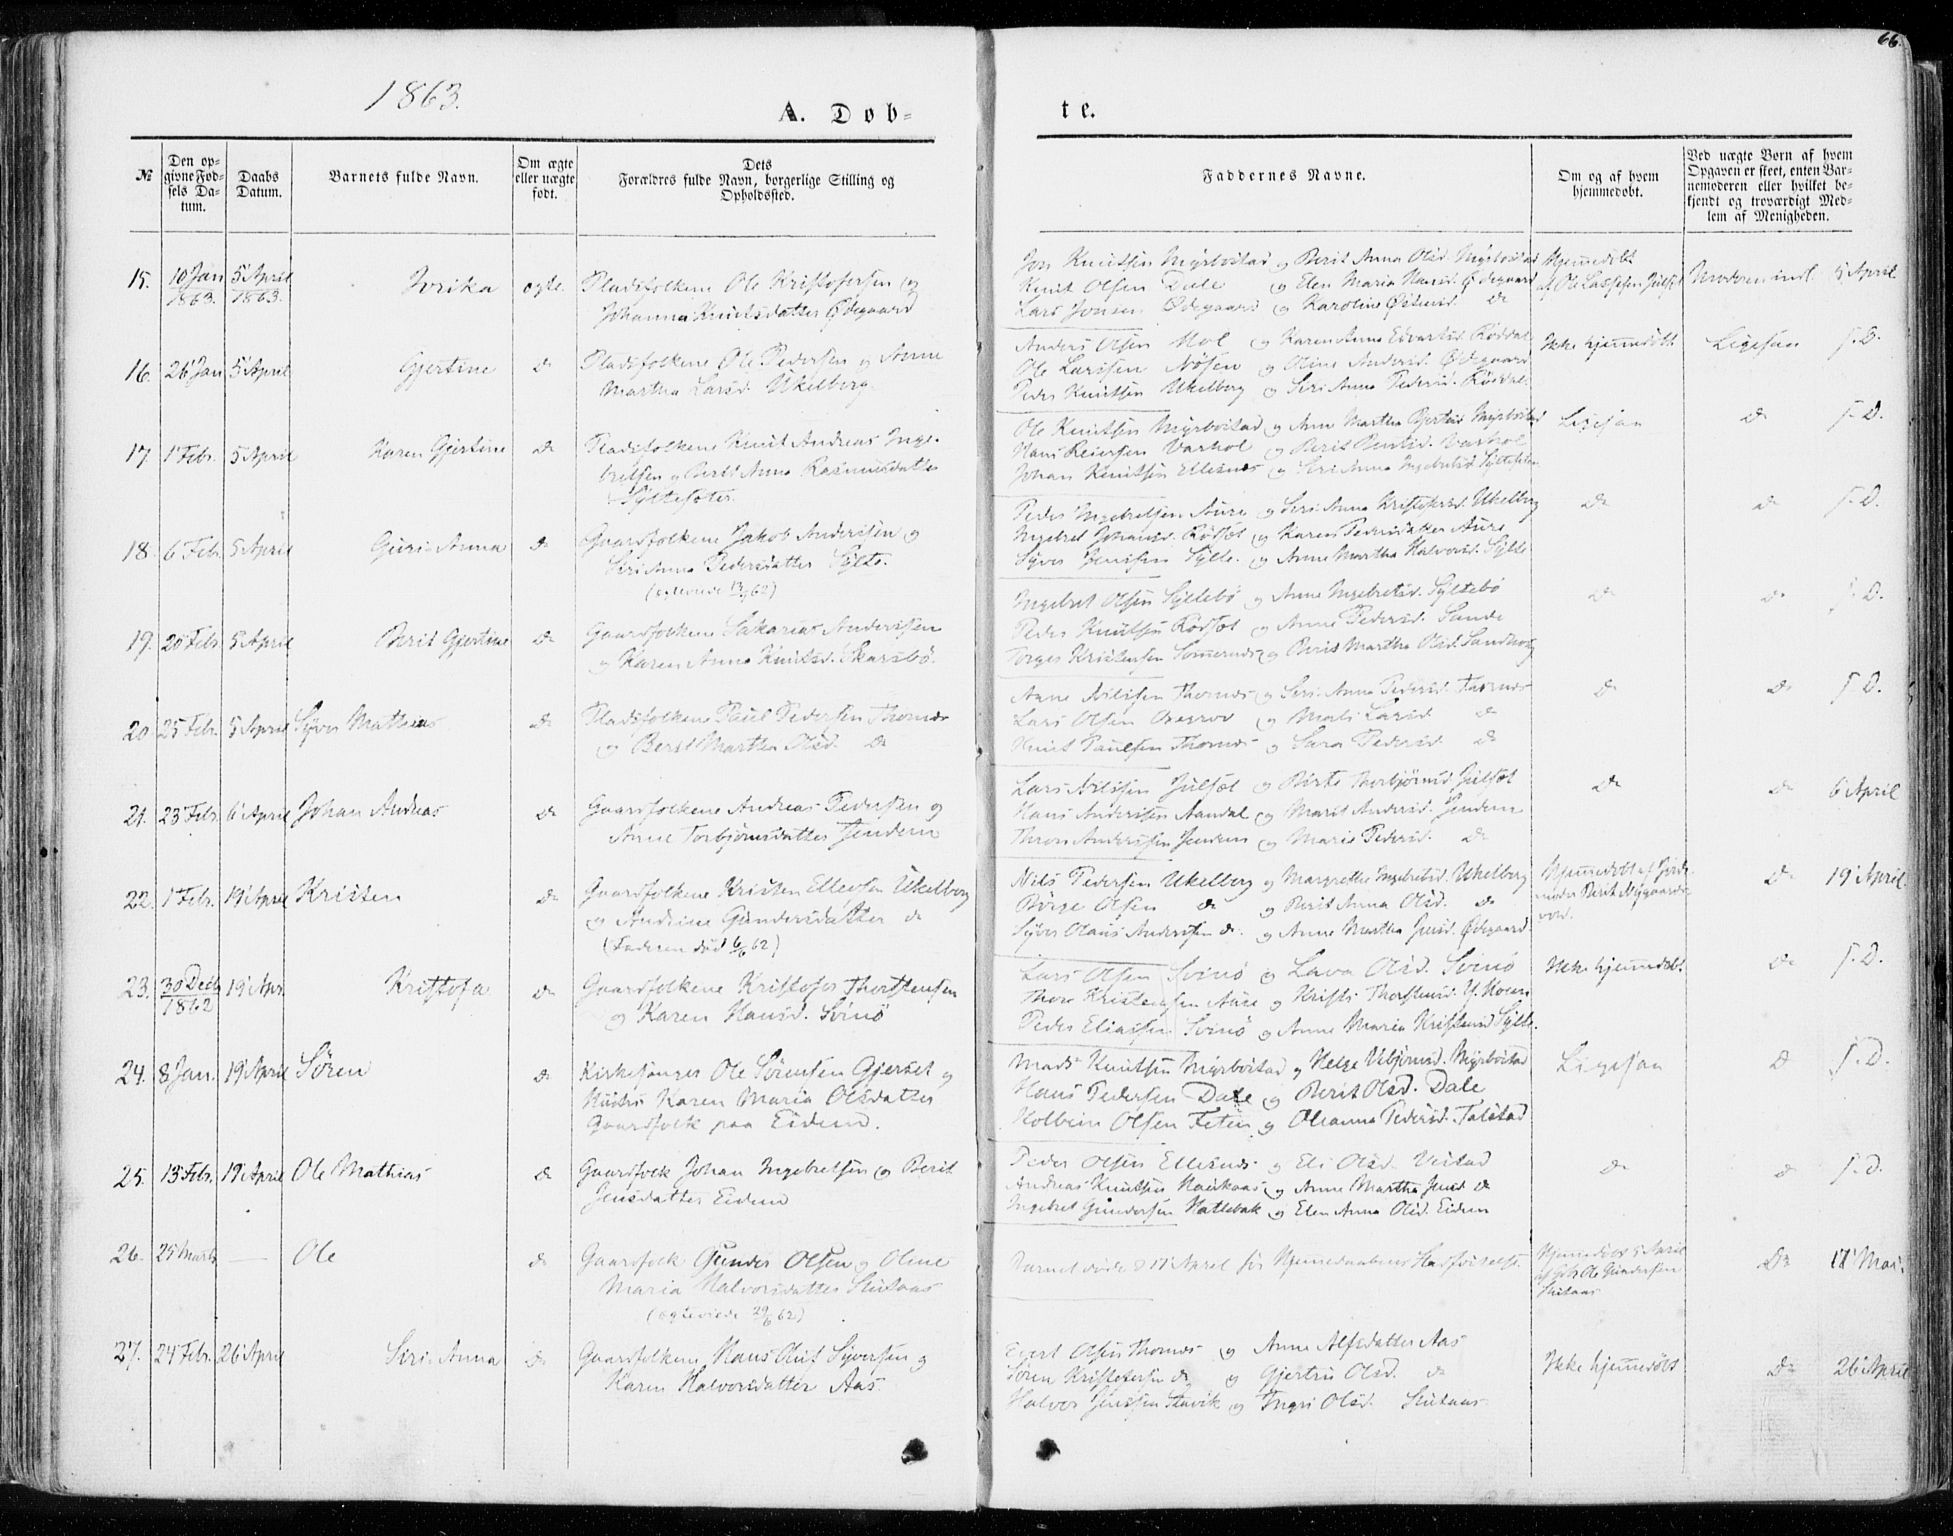 66.
1863.
A. Døbte.
№
Den opgivne Fødsels Datum.
Daabs Datum.
Barnets fulde Navn.
Om ægte eller uægte født.
Dets Forældres fulde Navn, borgerlige Stilling og Opholdssted.
Faddernes Navne.
Om og af hvem hjemmedøbt.
Ved uægte Børn af hvem Opgaven er skeet, enten Barnemoderen eller hvilket bekjendt og troværdigt Medlem af Menigheden.
15. 10 Jan 1863. 5 April 1863. ægte. Pladsfolkene Ole Kristofersen og
Johanna Knutsdatter Ødegaard
Jon Knutsen Myrbostad og Berit Anna Olsd. Myrbostad
Knut Olsen Dale og Elen Maria Hansd. Ødegaard
Lars Jonsen Ødegaard og Karoline do
Hjemmedøbt
af Ole Lassesen Julset
Moderen indl. 5 April
16. 26 Jan 5 April Gjertine do Pladsfolkene Ole Pedersen og Anne
Martha Larsd. Ukelberg.
Anders Olsen Mol og Karen Anna Edvartsd. Røddal
Ole Larssen Nøsen og Oline Andersd. Ødegaard
Peder Knutsen Ukelberg og Seri Anna Pedersd. Røddal.
Ikke hjemmedøbt Ligesaa S. D.
17. 1 Febr. 5 April Karen Gjertine do Pladsfolkene Knut Andreas Inge-
britsen og Berit Anna Rasmusdatter
Syltesæter
Ole Knutsen Myrbostad og Ane Martha Bjertsd. Myrbostad
Hans Reiersen Varhol og Berit Knutsd. Varhol
Johan Knutsen Ellesnes og Seri Anna Ingebretsd. Syltesæter
Ligesaa do S. D.
18. 6 Febr. 5 April Guri Anna do Gaardfolkene Jakob Anderssen og
Seri Anna Pedersdatter Sylte.
Peder Ingebretsen Aure og Seri Anna Kristofersd. Ukelberg
Ingebret Johansd. Rødset og Karen Pedersdatter Aure
Syver Jenssen Sylte. og Anne Martha Halvorsd. Sylte
do do S. D.
19. 20 Febr. 5 April Berit Gjertine do Gaardfolkene Sakarias Anderssen
og Karen Anna Knutsd. Skarsbø.
Ingebret Olsen Syltebø og Anne Ingebretsd. Syltebø
Peder Knutsen Rødset og Anne Pedersd. Sande
Torger Kristensen Sømernes og Berit Martha Olsd. Sandhog
do do S. D.
20. 25 Febr. 5 April Syver Mathias do Pladsfolkene Paul Pedersen Thornes
og Berit Martha Olsd. do
Nilssen Thornes og Seri Anna Pedersd. Thornes
Lars Olsen og Mali Larsd. do
Knut Paulsen Thornes og Sara Pedersd. do
do do S. D.
21. 23 Febr. 6 April Johan Andreas do Gaardfolkene Andreas Pedersen og
Anne Torbjørnsdatter Jendem
Lars Nilssen Julset og Birte Thorbjørnsd. Julset
Hans Anderssen Aandal og Marit Andersd. Jendem
Thron Anderssen Jendem og Marie Pedersd. do
do do 6 April
22. 1 Febr. 19 April Kristen do Gaardfolkene Kristen Ellevsen Ukelberg
og Andrine Gundersdatter do
(Faderen død 16/6 62)
Nils Pedersen Ukelberg og Margrethe Ingebretsd. Ukelberg
Børge Olsen do og Berit Anna Olsd. do
Syver Olaus Anderssen do. og Anne Martha Jensd. Ødegaard.
Hjemmedøbt af Jorde-
moder Berit Nygaards-
vold.
do 19 April.
23. 30 Decb. 1862 19 Apr. Kristofa do Gaardfolkene Kristofer Thorstensen
og Karen Hansd. Svinø
Lars Olsen Svinø og Lava Olsd. Svinø
Thore Kristensen Aure og Kristi Thorstensd. Y. Moen
Peder Eliassen Svinø og Anne Maria Kristensd. Sylte.
Ikke hjemmedøbt. do S. D.
24. 8 Jan. 19 April Søren do Kirkesanger Ole Sørensen Gjerset og
Hustru Karen Maria Olsdatter
Gaardfolk paa Eidem.
Mads Knutsen Myrbostad og Helge Vebjørnsd. Myrbostad
Hans Pedersen Dale og Berit Olsd. Dale
Kolbein Olsen Teten og Oleanna Pedersd. Talstad
Ligesaa do S. D.
25. 13 Febr. 19 April Ole Mathias do Gaardfolk Johan Ingebretsen og Berit
Jensdatter Eidem
Peder Olsen Ellesnes og Eli Olsd. Vestad
Andreas Knutsen Haukaas og Anne Martha Jensd do
Ingebret Gundersen Hatlebak og Elen Anna Olsd. Eidem
do do S. D.
26. 25 Marts — Ole do Gaardfolk Gunder Olsen og Olene
Maria Halvorsdatter Skutaas
(ægteviede 29/6 62)
Barnet døde d 17 April før Hjemmedaabens Stadfæstelse.
Hjemmedøbt 5 April
af Ole Gundersen
Skutaas
do 17 Mai.
27. 24 Febr. 26 April Siri Anna do Gaardfolkene Hans Knut Syversen og
Karen Halvorsdatter Aas.
Evert Olsen Thornes og Anne Alfsdatter Aas
Søren Kristofersen do og Gjertru Olsd. do
Halvor Jenssen Stavik og Ingri Olsd. Skutaas
Ikke hjemmedøbt do 26 April